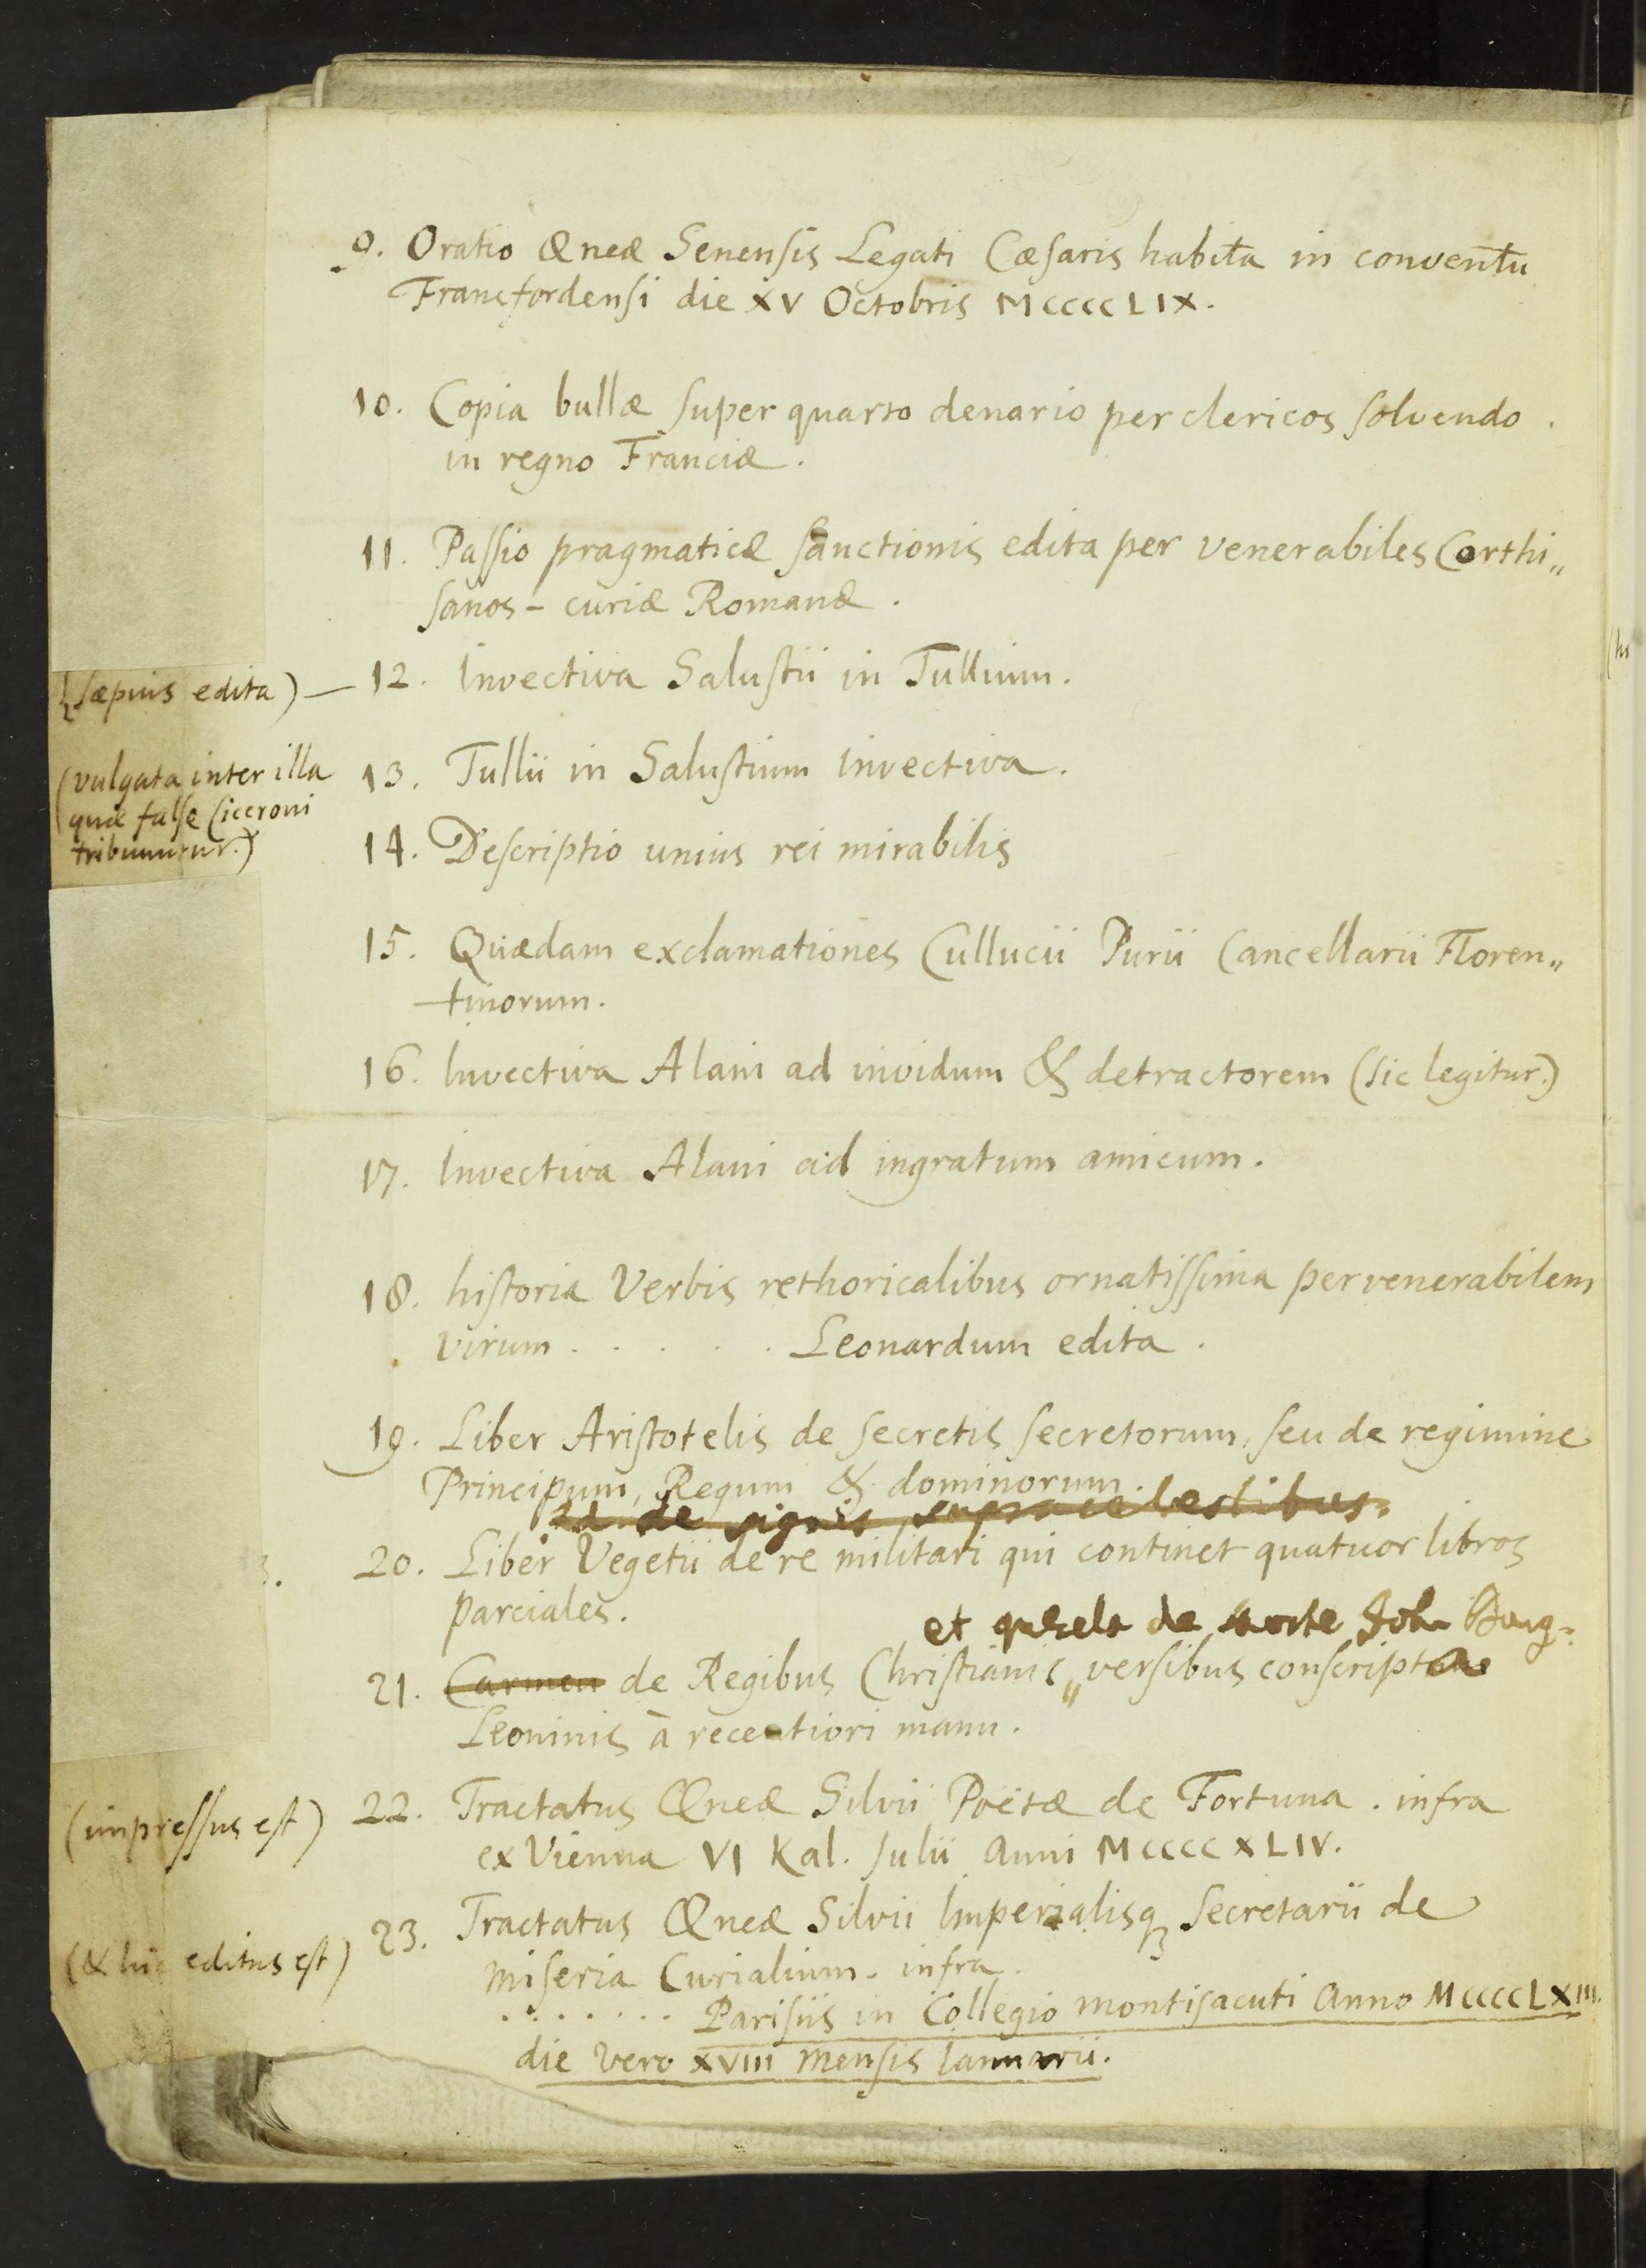 9. Oratio Æneæ Senensis Legati Cæsaris habita in conventu
Francfordensi die XV Octobris MCCCCLIX.
10. Copia bullæ super quarto denario per clericos solvendo.
in regno Franciæ.
11. Passio pragmaticæ sanctionis edita per venerabiles Corthi„
sanos - curiæ Romanæ.
(sæpius edita) — 12. Invectiva Salustii in Tullium.
(vulgata inter illa
quæ false Ciceroni
tribuuntur.)
13. Tullii in Salustium invectiva.
14. Descriptio unius rei mirabilis
15. Quædam exclamationes Cullucii Purii Cancellarii Floren„
tinorum.
16. Invectiva Alani ad invidum & detractorem (sic legitur.)
17. Invectiva Alani ad ingratum amicum.
18. historia Verbis rethoricalibus ornatissima per venerabilem
virum . . . . . Leonardum edita.
19. Liber Aristotelis de secretis secretorum, seu de regimine
Principum, Regum & dominorum.
de signis supracelestibus.
20. Liber Vegetii de re militari qui continet quatuor libros
parciales.
et querela de morte Joh. Burg.
21. Carmen de Regibus Christianis „ versibus conscripta
Leoninis à recentiori manu.
(impressus est) 22. Tractatus Æneæ Silvii Poëtæ de Fortuna. infra
ex Vienna VI Kal. Julii Anni MCCCCXLIV.
(& hic editus est) 23. Tractatus Æneæ Silvii Imperialisq Secretarii de
miseria Curialium. infra.
. . . . . . . Parisiis in Collegio montisacuti Anno MCCCCLXIII.
die vero XVIII mensis Ianuarii.